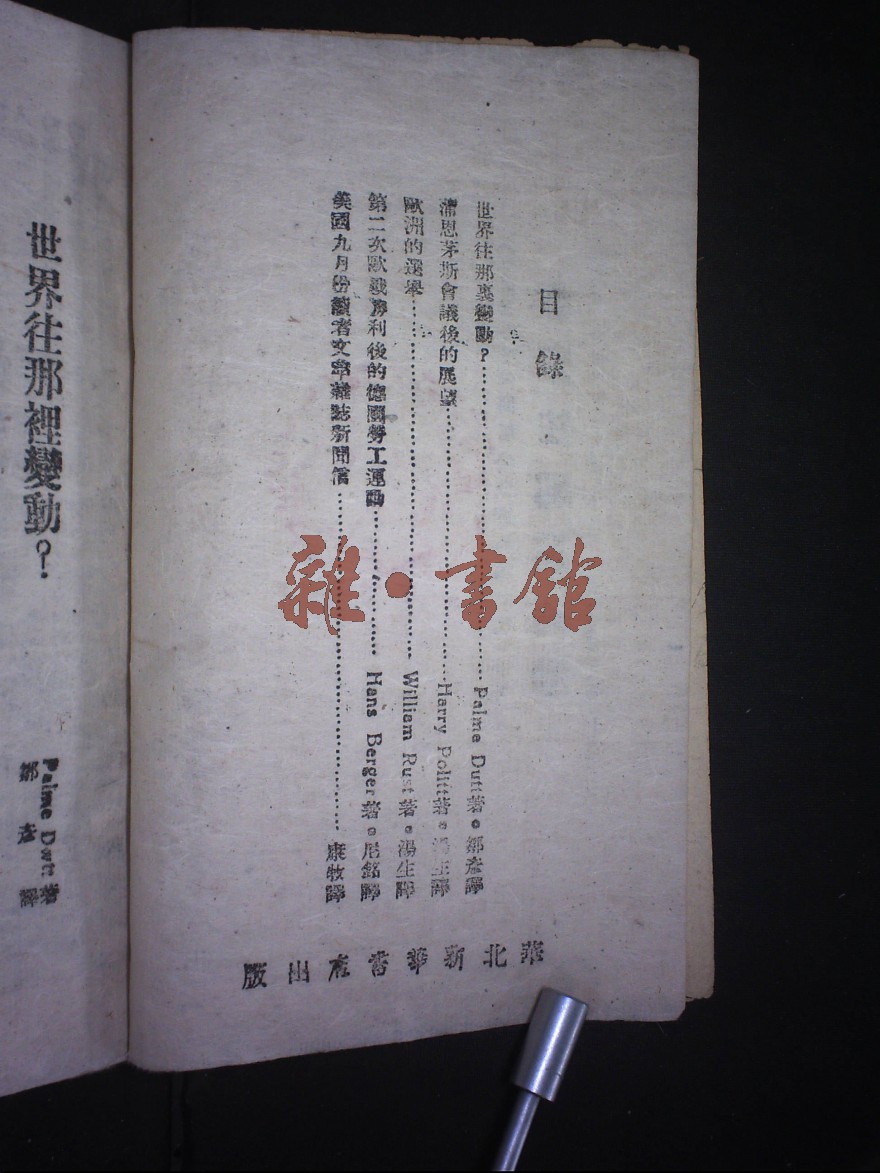 目錄
世界往那裏變動？……Palme Dutt著。鄒彥譯
蒲恩茅斯會議後的展望……Harry Politt著。譯
歐洲的選舉……William Rust著。湯生譯
第二次歐戰勝利後的德國勞工運動……Hans Berger著。尼銘譯
美國九月份讀者文章雜誌新聞信……康牧譯
華北新華書店出版
世界往那裡變動？
Palme Dutt著
鄒彥譯
雜·書館